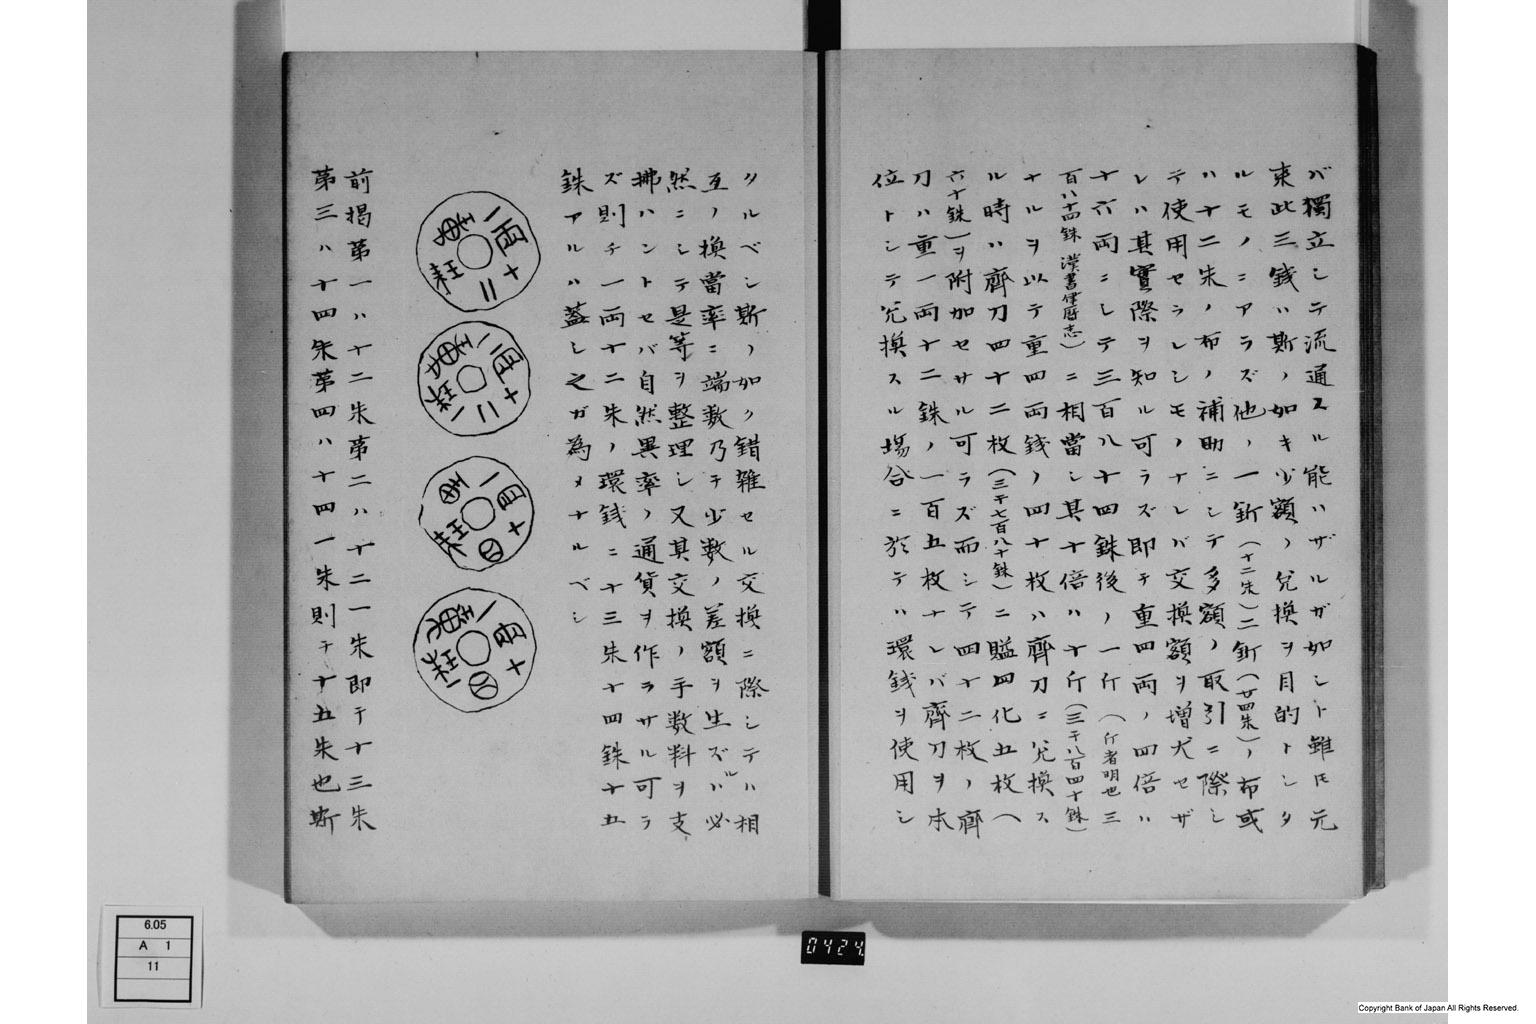 バ獨立シテ流通スル能ハザルガ如シト雖モ元
来此三銭ハ斯ノ如キ少額ノ兌換ヲ目的トシタ
ルモノニアラズ他ノ一釿(十二朱)二釿(廿四朱)ノ布或
ハ十二朱ノ布ノ補助ニシテ多額ノ取引ニ際シ
テ使用セラレシモノナレバ交換額ヲ増大セザ
レハ其實際ヲ知ル可ラズ即チ重四両ノ四倍ハ
十六両ニシテ三百八十四銖後ノ一斤(斤者明也三
百八十四銖漢書律暦志)ニ相當シ其十倍ハ十斤(三千八百四十銖)
ナルヲ以テ重四両銭ノ四十枚ハ齊刀ニ兌換ス
ル時ハ齊刀四十二枚(三千七百八十銖)ニ賹四化五枚(
六十銖)ヲ附加セサル可ラズ而シテ四十二枚ノ齊
刀ハ重一両十二銖ノ一百五枚ナレバ齊刀ヲ本
位トシテ兌換スル場合ニ於テハ環銭ヲ使用シ
ツルベシ斯ノ如ク錯雑セル交換ニ際シテハ相
互ノ換當率ニ端数乃チ少数ノ差額ヲ生ズルハ必
然ニシテ是等ヲ整理シ又其交換ノ手数料ヲ支
拂ハントセバ自然異率ノ通貨ヲ作ラサル可ラ
ズ則チ一両十二朱ノ環銭ニ十三朱十四銖十五
銖アルハ蓋シ之ガ為メナルベシ
前掲第一ハ十二朱第二ハ十二一朱即チ十三朱
第三ハ十四朱第四ハ十四一朱則チ十五朱也斯
0424.
6.05
A 1
11
Copyright Bank of Japan All Rights Reserved.